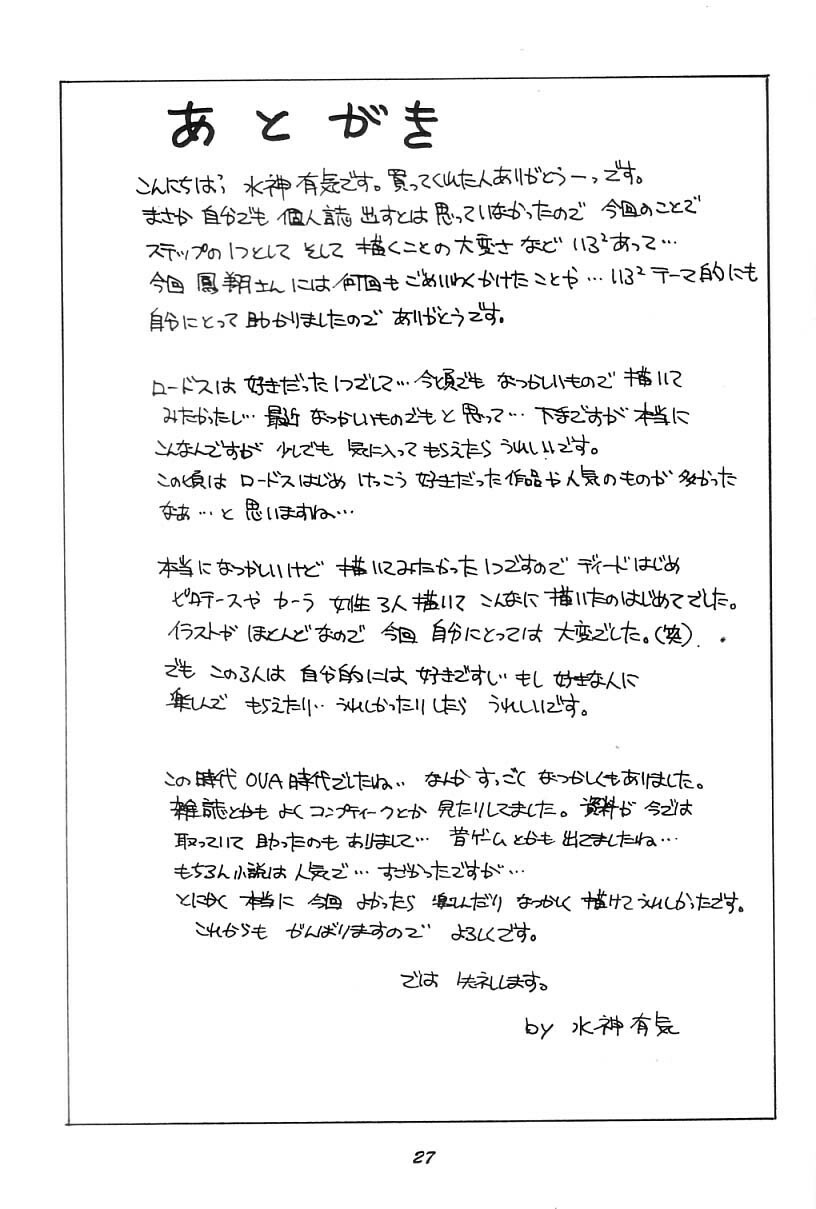 あとがき
こんにちは、水神有気です。買ってくれた人ありがとうーっです。
まさか 自分でも 個人誌 出すとは 思っていなかったので 今回のことで
ステップの1つとして そして 描くことの大変さ など いろ²あって…
今回 鳳翔さんには何回も ごめいわくかけたことや… いろ² テーマ的にも
自分にとって 助かりましたので ありがとうです。
ロードスは 好きだった1つでして… 今頃でも なつかしいもので 描いて
みたかったし… 最近 なつかしいものでもと 思って… 下手ですが 本当に
こんなんですが 少しでも 気に入って もらえたら うれしいです。
この頃は ロードスはじめ けっこう 好きだった作品や人気のものが 多かった
なぁ…と 思いますね…
本当に なつかしいけど 描いてみたかった1つですので ディードはじめ
ピロテースや カーラ 女性3人 描いて こんなに 描いたのはじめてでした。
イラストが ほとんどなので 今回 自分にとっては 大変でした。(笑)
でも この3人は 自分的には、好きですし もし 好きな人に
楽しんで もらえたり… うれしかったりしたら うれしいです。
この時代 OVA時代でしたね… なんか すっごく なつかしくもありました。
雑誌とかも よく コンプティークとか 見たりしてました。資料が 今では
取っていて 助ったのも ありまして… 昔ゲームとかも 出てましたね…
もちろん小説は 人気で… すごかったですが…
とにかく 本当に 今回 よかったら 楽しんだり なつかしく 描けて うれしかったです。
これからも がんばりますので よろしくです。
では 失礼します。
by 水神有気
27